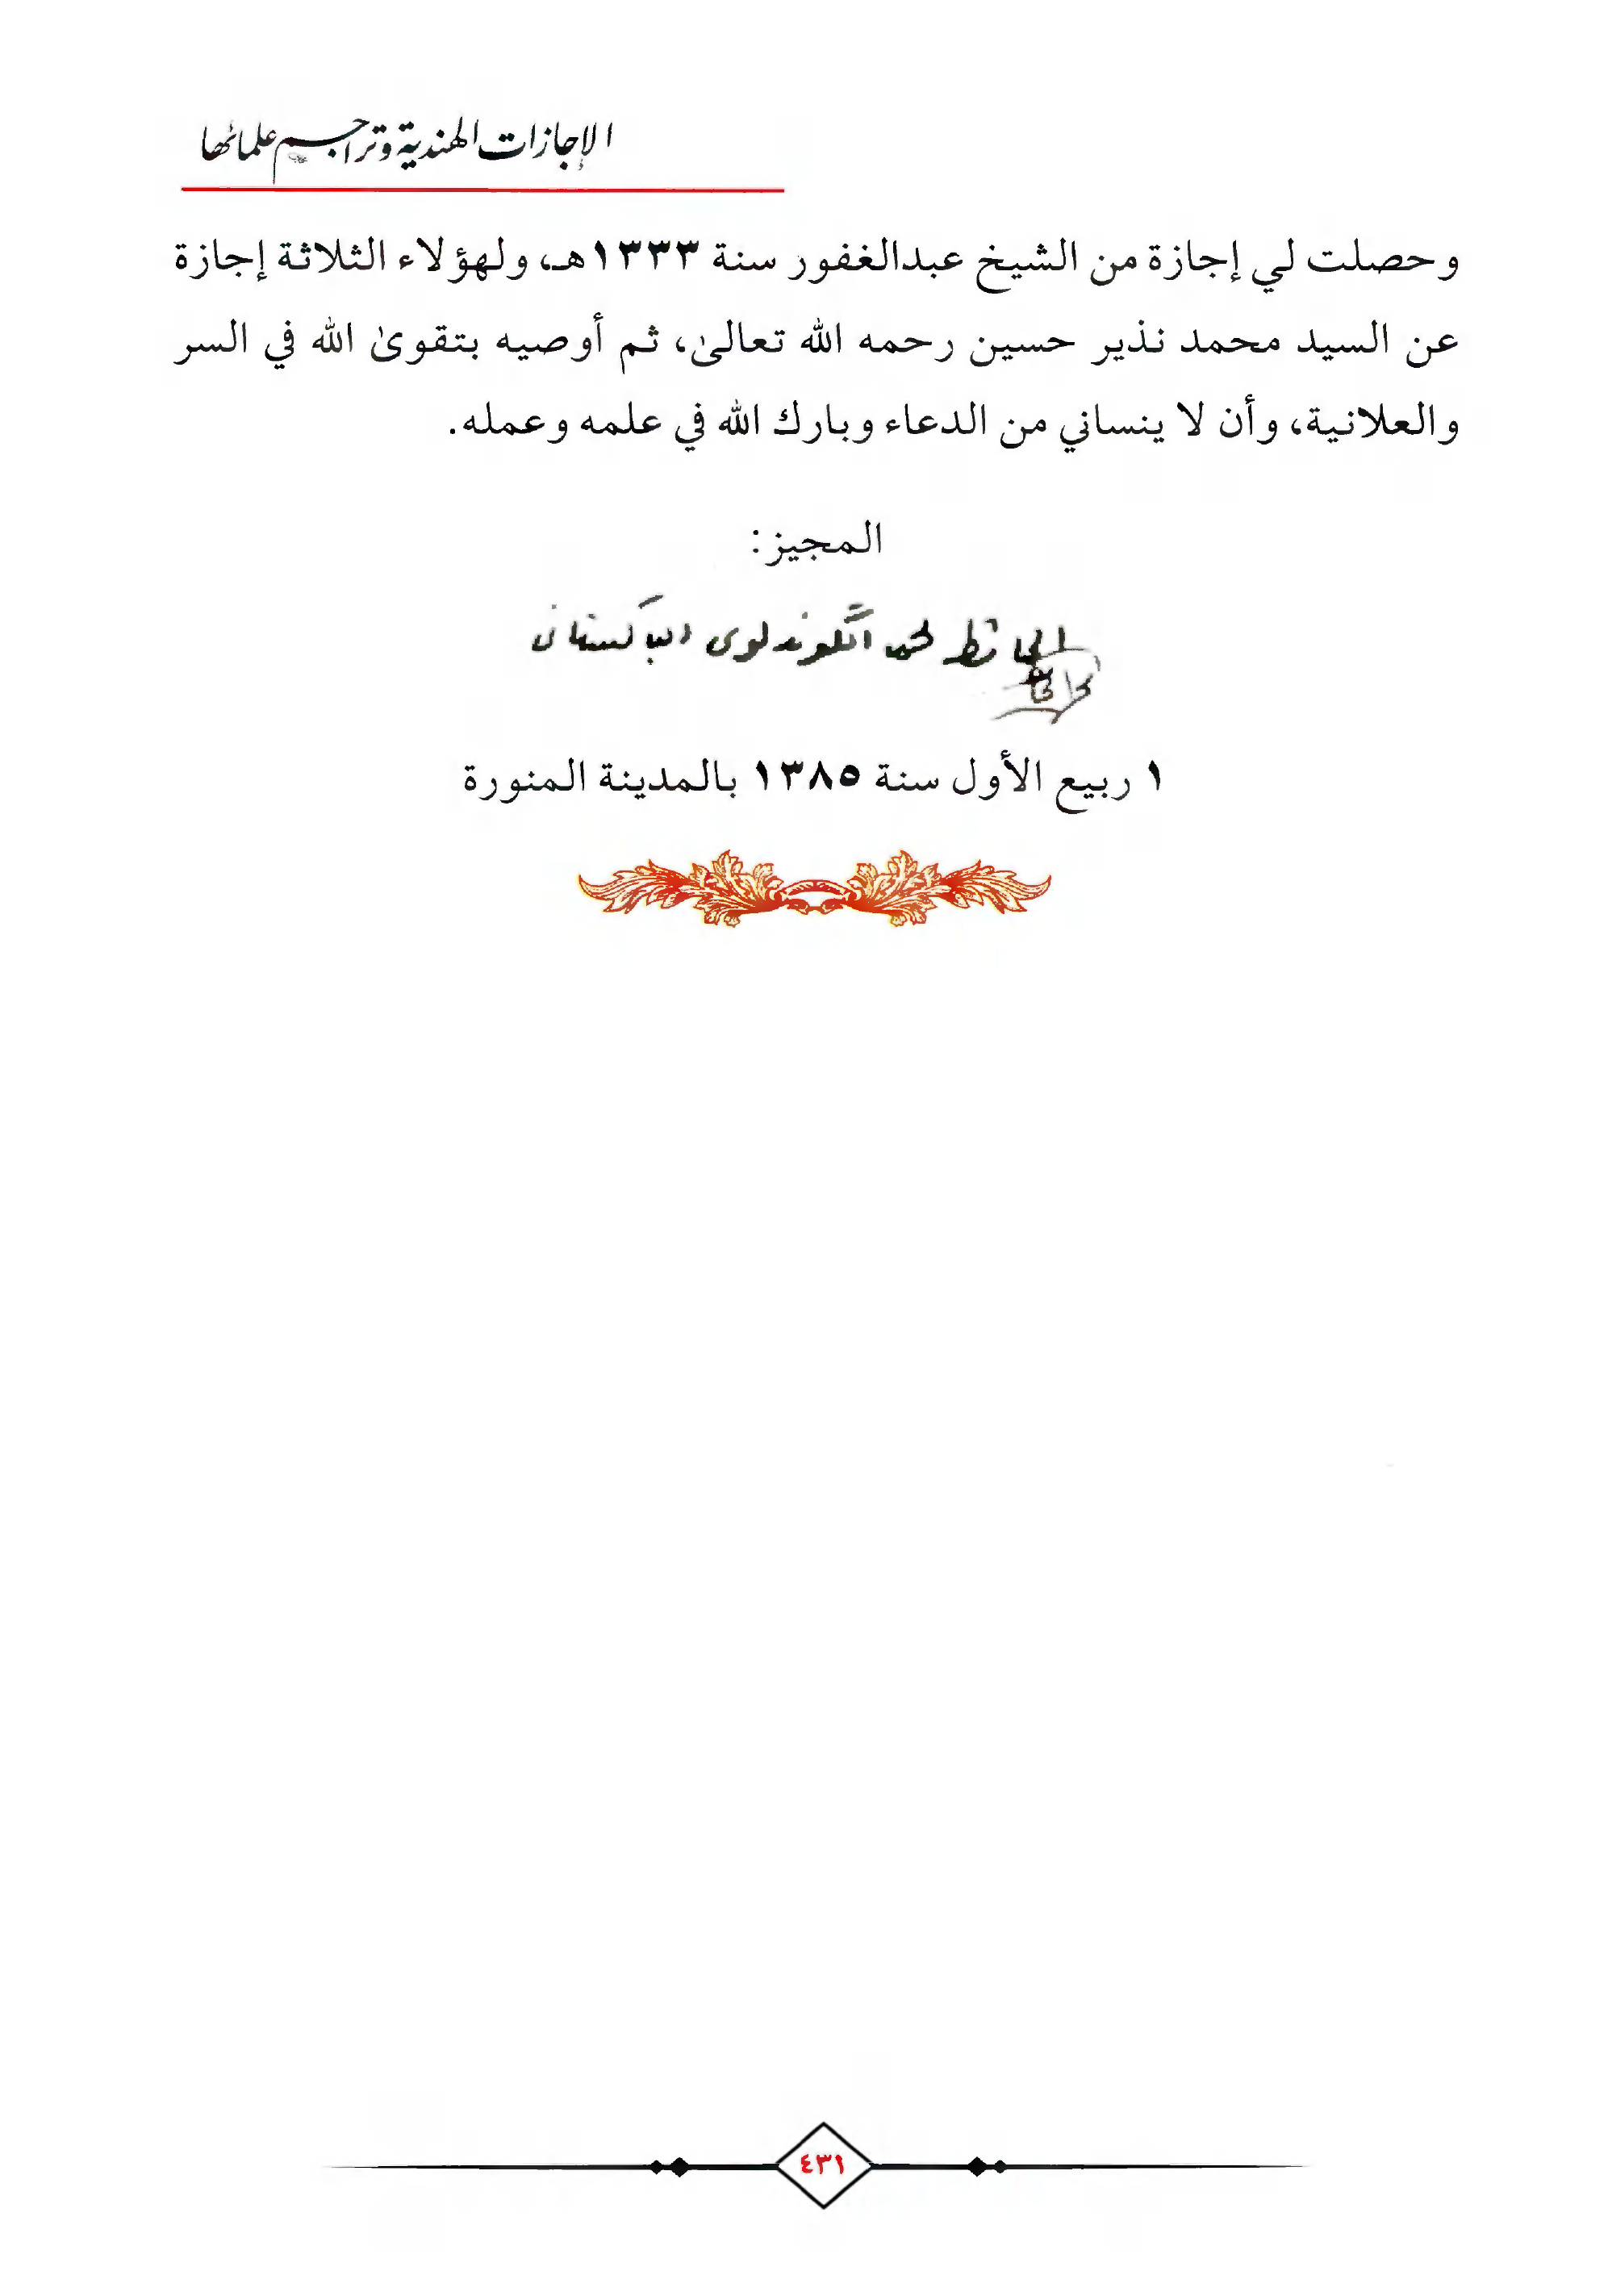 الإجازات الهندية وتراجم علمائها
وحصلت لي إجازة من الشيخ عبدالغفور سنة ١٣٣٣هـ، ولهؤلاء الثلاثة إجازة
عن السيد محمد نذير حسين رحمه الله تعالىٰ، ثم أوصيه بتقوىٰ الله في السر
والعلانية، وأن لا ينساني من الدعاء وبارك الله في علمه وعمله.
المجيز:
الحافظ محمد الگوندلوى الباكستانى
١ ربيع الأول سنة ١٣٨٥ بالمدينة المنورة
٤٣١